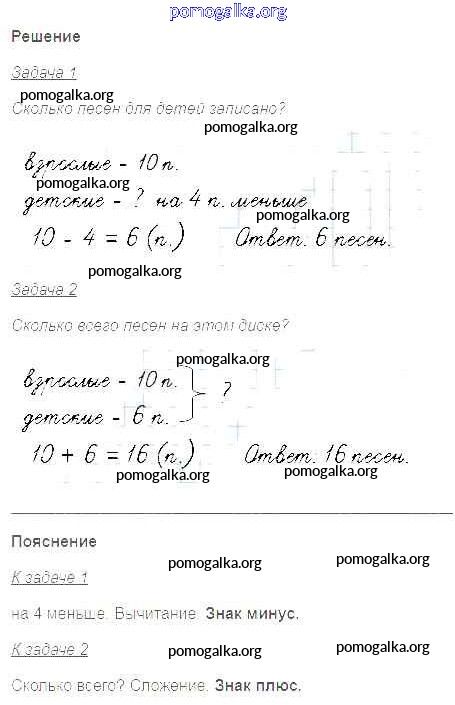 pomogalka.org
Решение
Задача 1
pomogalka.org
Сколько песен для детей записано?
pomogalka.org
взрослые - 10 п.
pomogalka.org
детские - ? на 4 п. меньше
pomogalka.org
10 - 4 = 6 (п.) Ответ. 6 песен.
pomogalka.org
Задача 2
Сколько всего песен на этом диске?
pomogalka.org
взрослые - 10 п.
?
детские - 6 п.
10 + 6 = 16 (п.) Ответ. 16 песен.
pomogalka.org pomogalka.org
Пояснение
pomogalka.org pomogalka.org
К задаче 1
на 4 меньше. Вычитание. Знак минус.
К задаче 2
pomogalka.org pomogalka.org
Сколько всего? Сложение. Знак плюс.